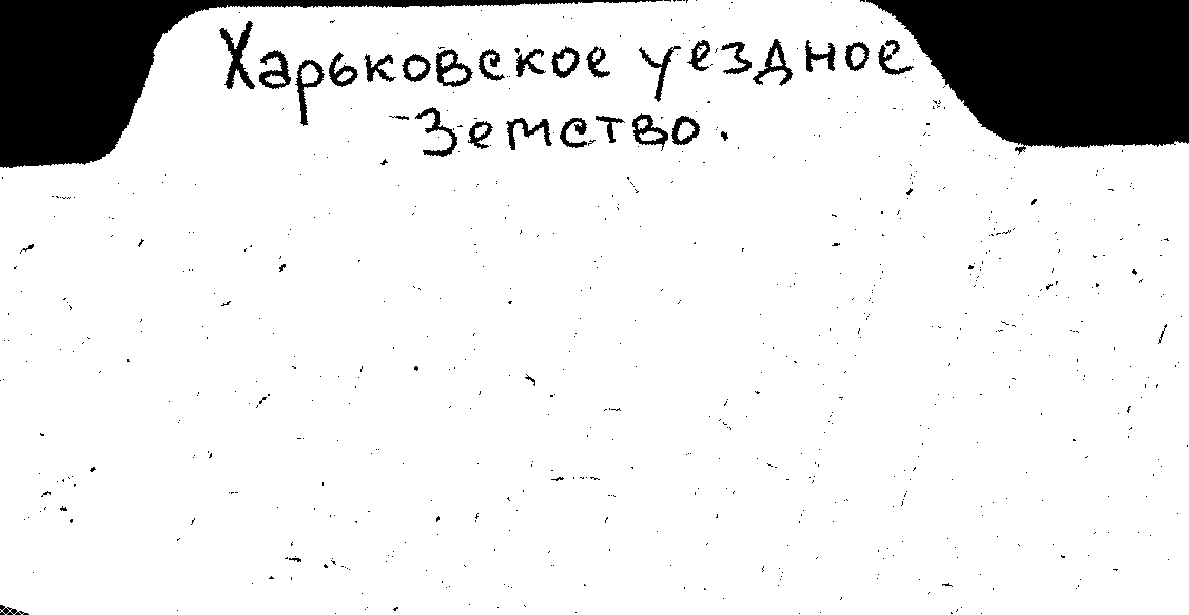 Харьковское уездное
Земство.